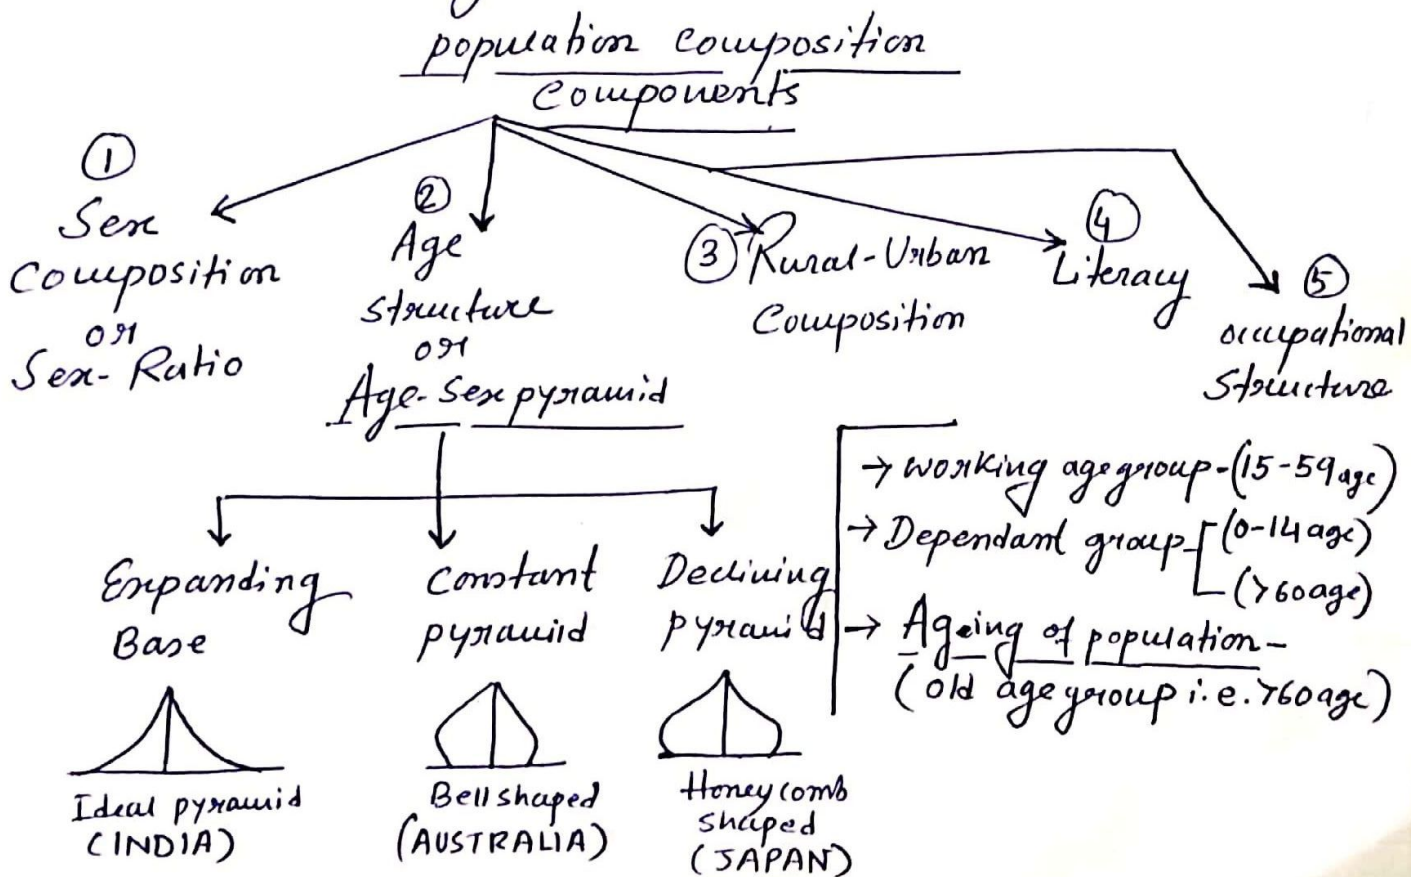 population composition
components
①
Sex
Composition
or
Sex-Ratio
②
Age
structure
or
Age-Sex pyramid
③ Rural-Urban
Composition
④
Literacy
⑤
occupational
Structure
Expanding
Base
Constant
pyramid
Declining
pyramid
Ideal pyramid
(INDIA)
Bell shaped
(AUSTRALIA)
Honeycomb
shaped
(JAPAN)
→ working age group-(15-59 age)
→ Dependant group (0-14 age)
(>60 age)
→ Ageing of population-
(old age group i.e. >60 age)